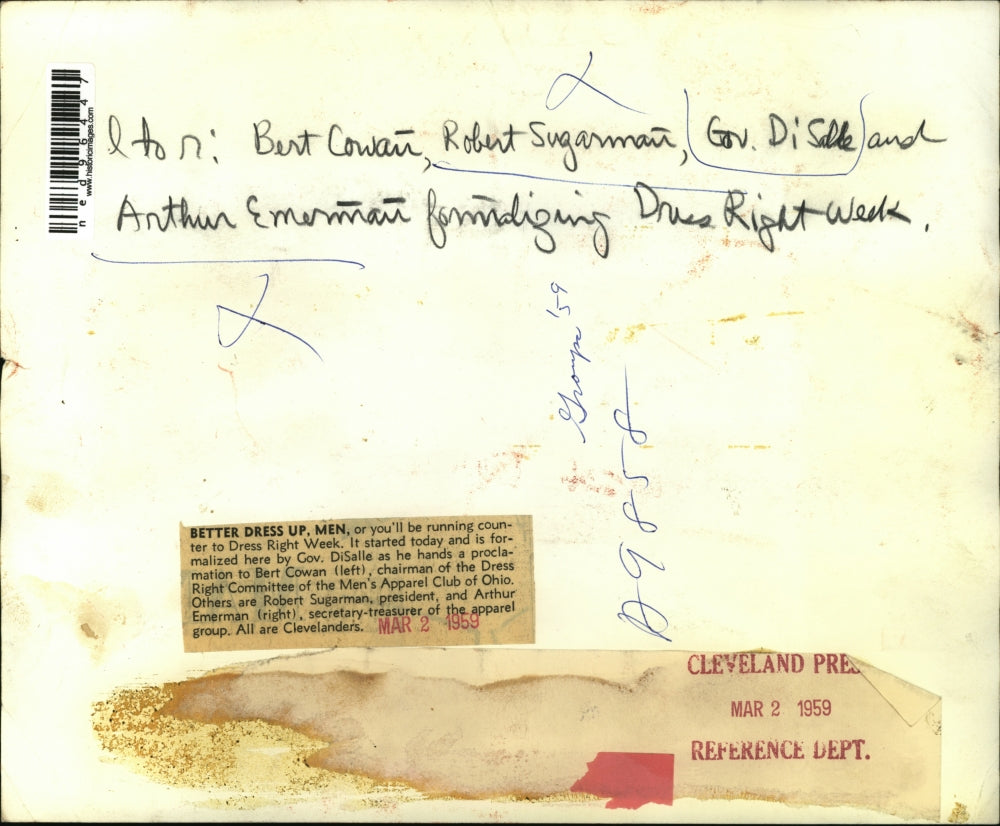 l to r: Bert Cowan, Robert Sugarman, Gov. DiSalle and
Arthur Emerman formalizing Dress Right Week.
ned96447
www.historicimages.com
Groups '59
A9858
BETTER DRESS UP, MEN, or you'll be running coun-
ter to Dress Right Week. It started today and is for-
malized here by Gov. DiSalle as he hands a procla-
mation to Bert Cowan (left), chairman of the Dress
Right Committee of the Men's Apparel Club of Ohio.
Others are Robert Sugarman, president, and Arthur
Emerman (right), secretary-treasurer of the apparel
group. All are Clevelanders. MAR 2 1959
CLEVELAND PRES
MAR 2 1959
REFERENCE DEPT.